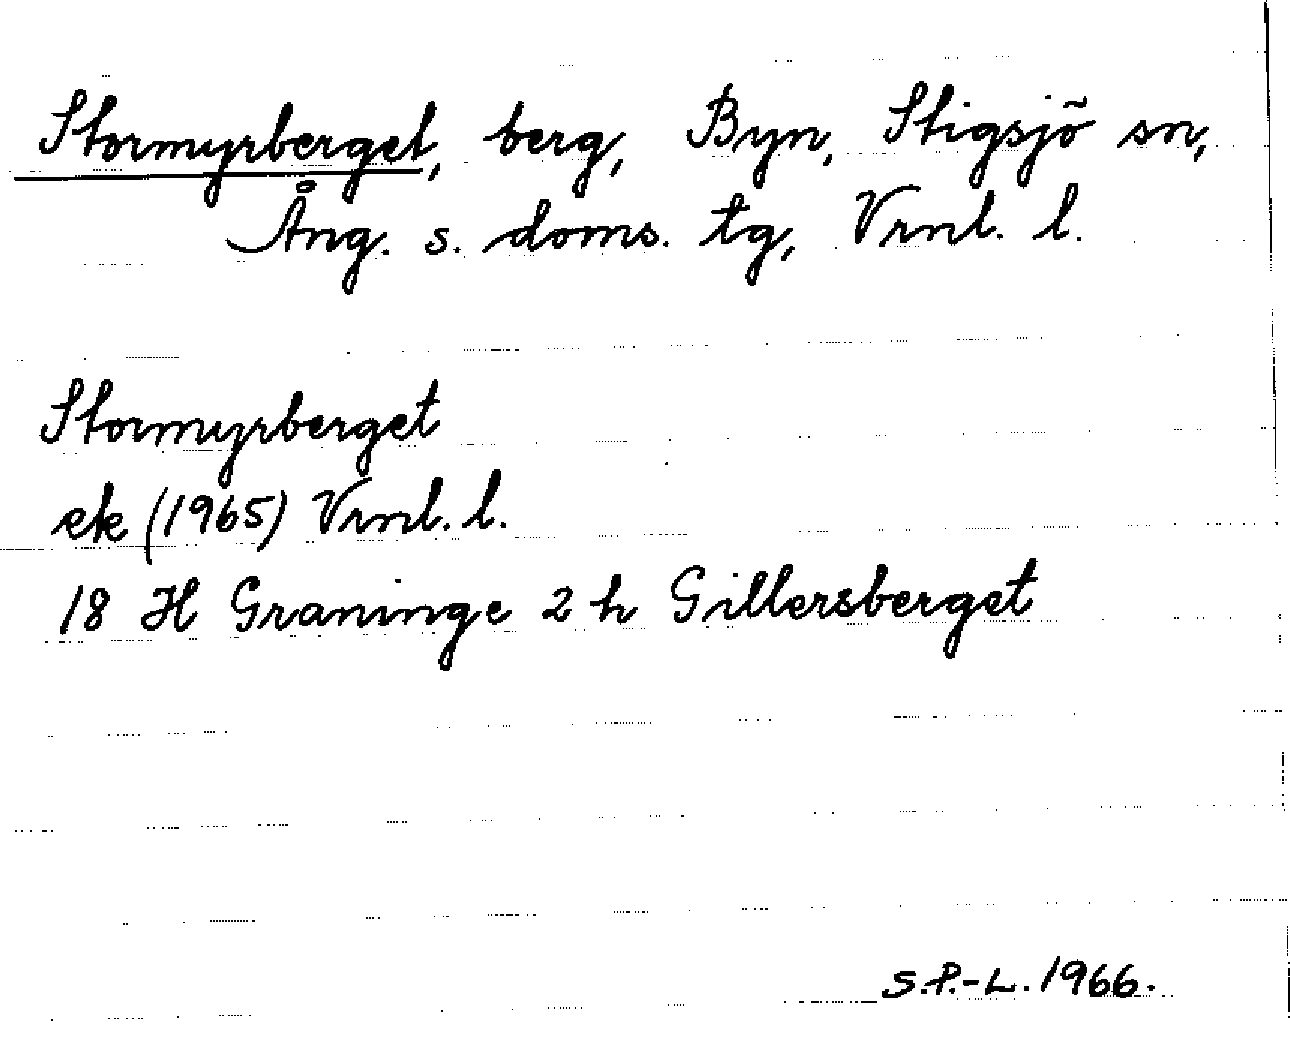 Stormyrberget, berg, Byn, Stigsjö sn,
Ång. s. doms. tg, Vrnl. l.
Stormyrberget
ek (1965) Vrnl. l.
18 H Graninge 2 h Gillersberget
S.P.-L. 1966.